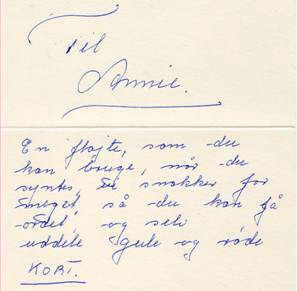 Til
Annie.
En fløjte, som du
kan bruge, når du
synes, de snakker for
meget, så du kan få
ordet, og selv
uddele gule og røde
KORT.